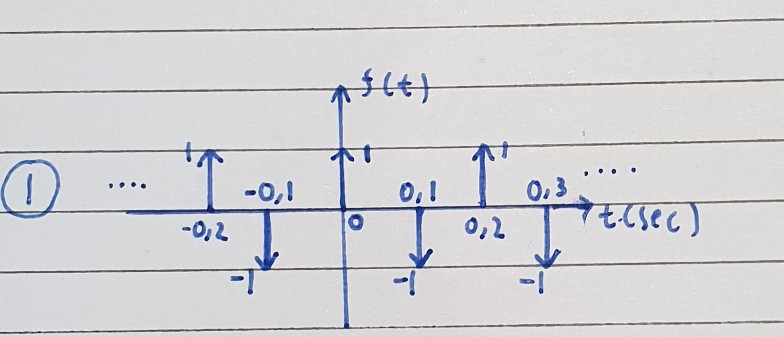 f(t)
1 1 1
① .... -0,1 0,1 0,3 ....
-0,2 0 0,2 t(sec)
-1 -1 -1